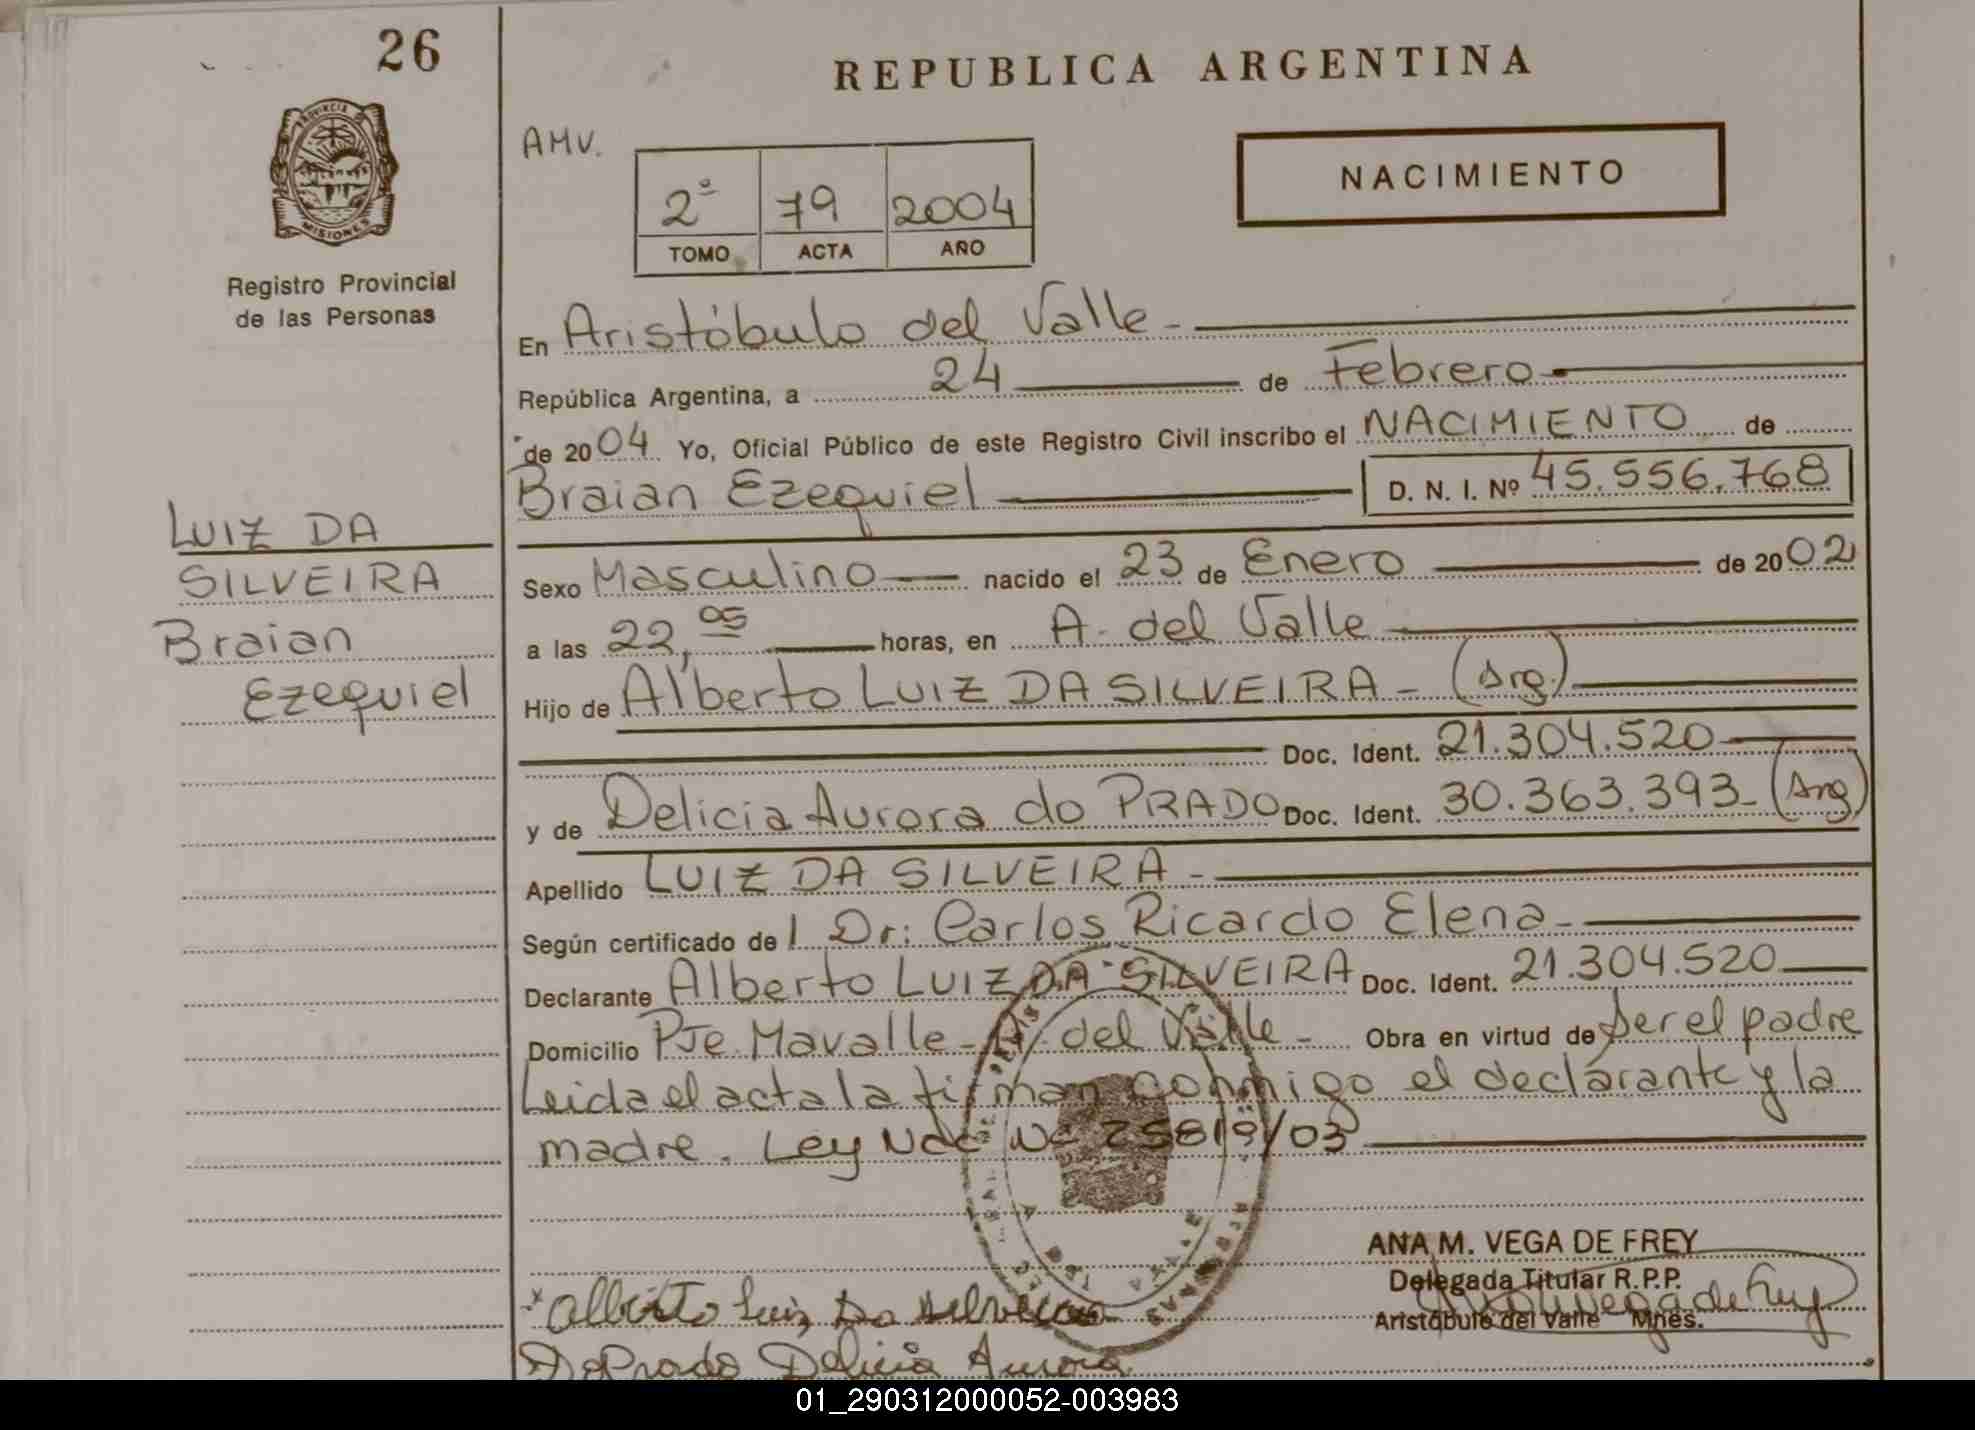 26
REPUBLICA ARGENTINA
PROVINCIA DE
MISIONES
Registro Provincial
de las Personas
AMV.
2º 79 2004
TOMO ACTA AÑO
NACIMIENTO
En Aristóbulo del Valle -
República Argentina, a 24 de Febrero
de 2004 Yo, Oficial Público de este Registro Civil inscribo el NACIMIENTO de
Braian Ezequiel D. N. I. Nº 45.556.768
LUIZ DA
SILVEIRA
Braian
Ezequiel
Sexo Masculino nacido el 23 de Enero de 2002
a las 22,05 horas, en A. del Valle
Hijo de Alberto LUIZ DA SILVEIRA - (Arg.)
Doc. Ident. 21.304.520
y de Delicia Aurora do PRADO Doc. Ident. 30.363.393- (Arg)
Apellido LUIZ DA SILVEIRA -
Según certificado de l Dr: Carlos Ricardo Elena-
Declarante Alberto LUIZ DA SILVEIRA Doc. Ident. 21.304.520
Domicilio Pje. Mavalle - A. del Valle - Obra en virtud de Ser el padre
Leida el acta la firman conmigo el declarante y la
madre. Ley Nac Nº 25819/03
ANA M. VEGA DE FREY
Delegada Titular R.P.P.
Aristóbulo del Valle Mnes.
Alberto Luiz Da Silveira
Do Prado Delicia Aurora
01_290312000052-003983